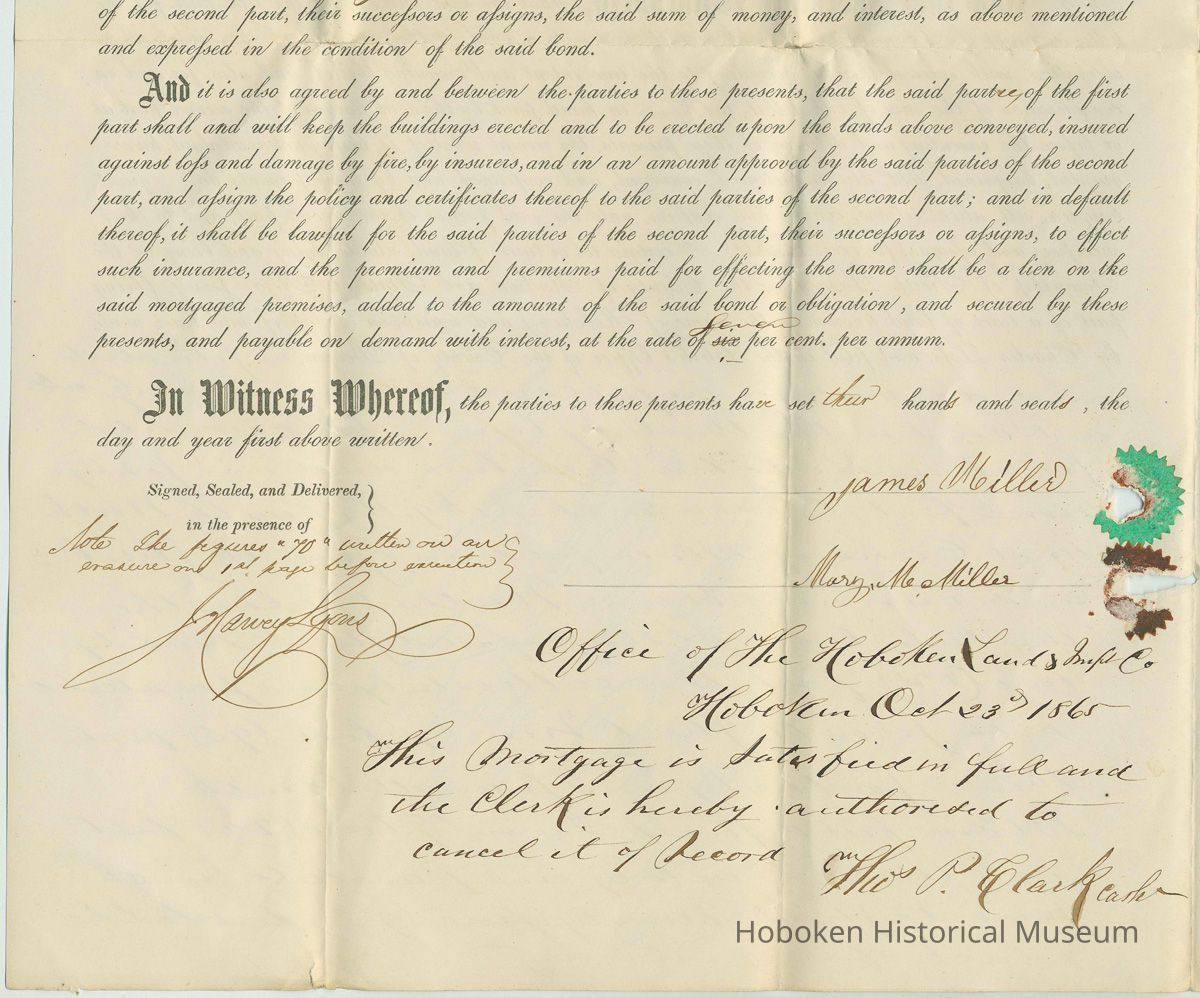 of the second part, their succeſsors or aſsigns, the said sum of money, and interest, as above mentioned
and expreſsed in the condition of the said bond.
And it is also agreed by and between the parties to these presents, that the said parties, of the first
part shall and will keep the buildings erected and to be erected upon the lands above conveyed, insured
against loſs and damage by fire, by insurers, and in an amount approved by the said parties of the second
part, and aſsign the policy and certificates thereof to the said parties of the second part; and in default
thereof, it shall be lawful for the said parties of the second part, their succeſsors or aſsigns, to effect
such insurance, and the premium and premiums paid for effecting the same shall be a lien on the
said mortgaged premises, added to the amount of the said bond or obligation, and secured by these
seven
presents, and payable on demand with interest, at the rate of six per cent. per annum.
In Witness Whereof, the parties to these presents have set their hands and seals, the
day and year first above written.
Signed, Sealed, and Delivered,
in the presence of
Note The figures "70" written on an
erasure on 1st page before execution
J Harvey Lyons
James Miller
Mary M. Miller
Office of The Hoboken Land & Impt Co
Hoboken Oct 23d 1865
This Mortgage is Satisfied in full and
the Clerk is hereby authorised to
cancel it of Record
Thos P. Clark cashr
Hoboken Historical Museum